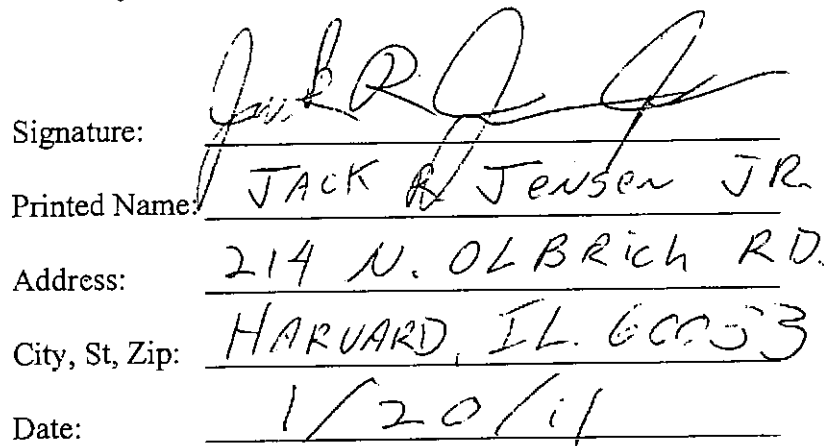 Signature: Jack R Jensen Jr
Printed Name: JACK R Jensen JR.
Address: 214 N. OLBRich RD.
City, St, Zip: HARVARD, IL. 60033
Date: 1/20/11